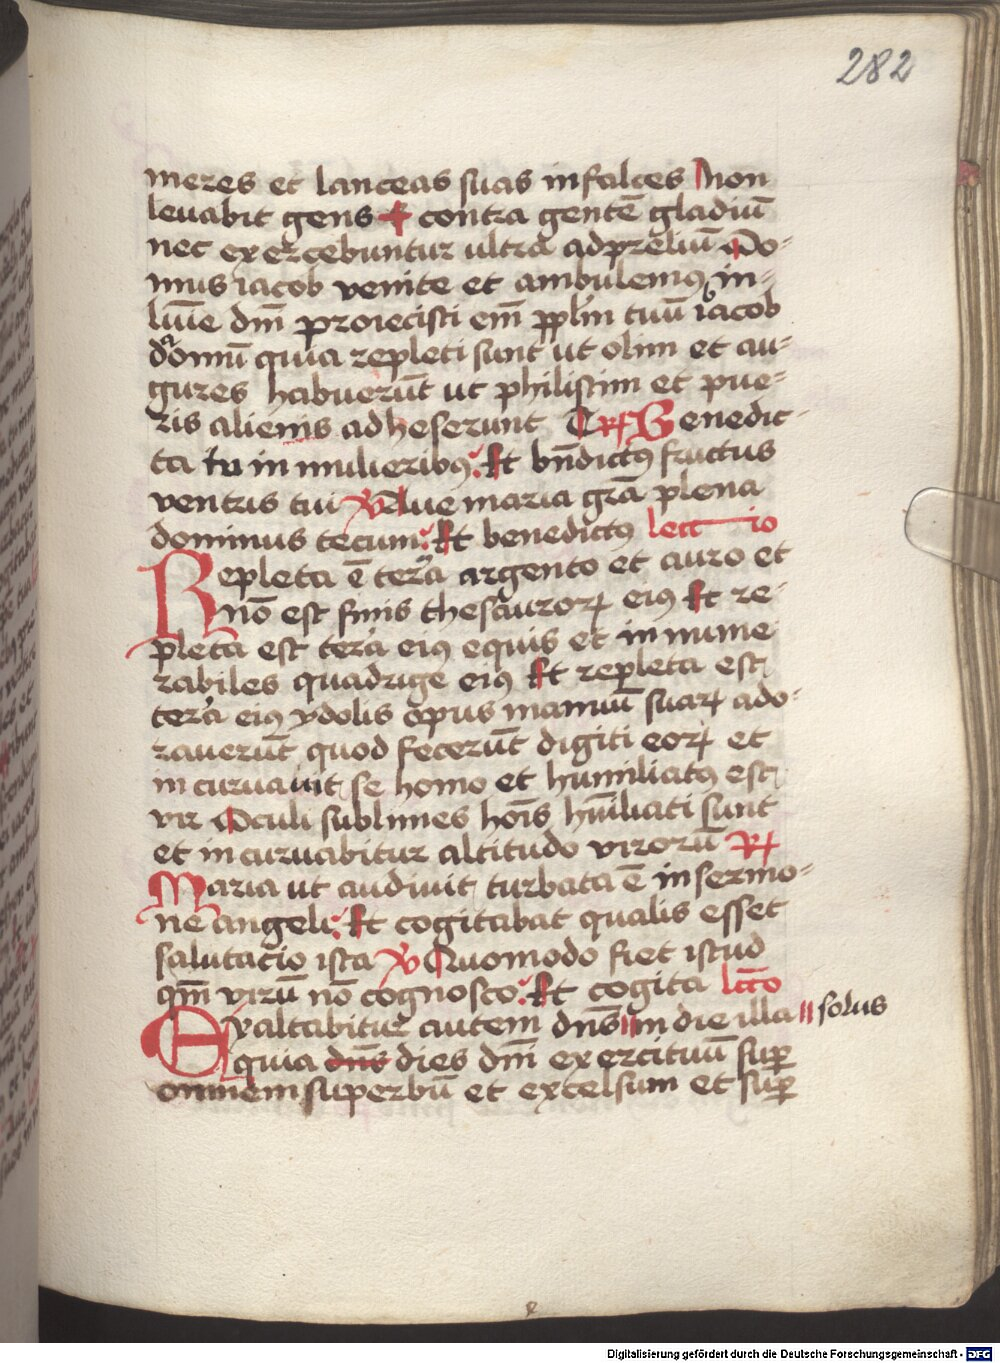 282
meres et lanceas suas in falces Non
levabit gens contra gentē gladiū
nec exercebuntur ultra ad preliū Do-
mus iacob venite et ambulemus in
lūīe dm̄ proiecisti em̄ pplm̄ tuū iacob
domū quia repleti sunt ut olim et au-
gures habuerūt ut philistim et pue-
ris alienis adheserunt Rs Benedic-
ta tu in mulieribꝯ Et bn̄dictꝯ fructus
ventris tui V Ave maria grā plena
dominus tecum Et benedictꝯ lectio
Repleta ē terra argento et auro et
nō est finis thesaurorꝝ eiꝯ Et re-
pleta est terra eiꝯ equis et in nume
rabiles quadrige eiꝯ Et repleta est
terra eiꝯ ydolis opus manuū suarꝝ ado-
raverūt quod fecerūt digiti eorꝝ et
in curvavit se homo et humiliatꝯ est
vir Oculi sublimes hoīs hūiliati sunt
et in curvabitur altitudo virorū R
Maria ut audivit turbata ē in sermo-
ne angeli Et cogitabat qualis esset
salutacio ista V Quomodo fiet istud
qm̄ virū nō cognosco Et cogita lcc̄o
Exaltabitur autem dn̄s || in die illa || solus
quia dn̄s dies dm̄ exercituū suꝑ
omnem superbū et excelsum et suꝑ
Digitalisierung gefördert durch die Deutsche Forschungsgemeinschaft - DFG